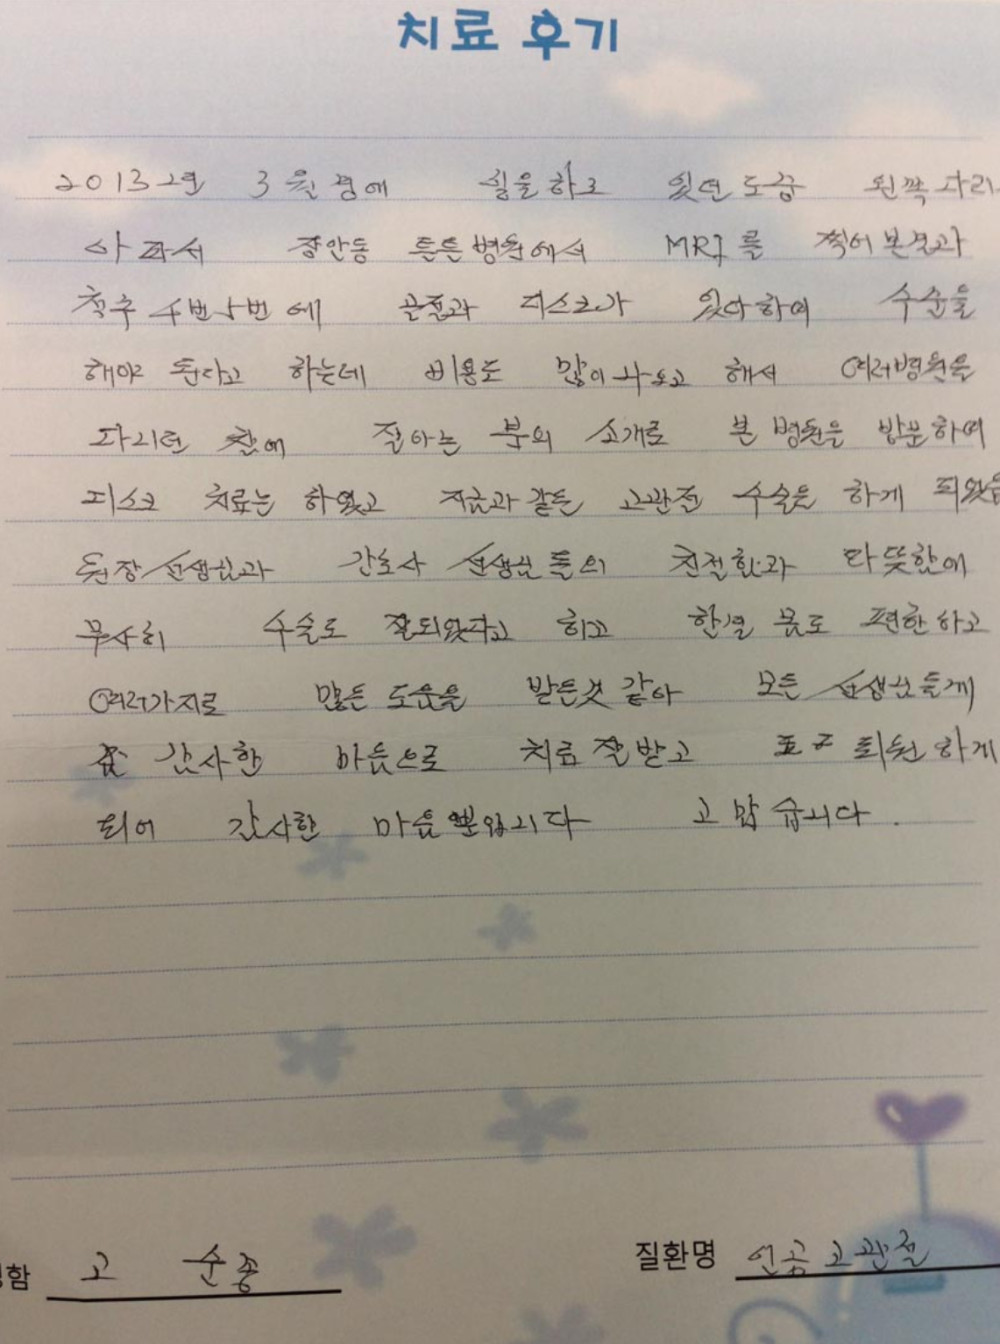 치료 후기
2013년 3월경에 일을하고 있던도중 왼쪽다리
아파서 장안동 튼튼병원에서 MRI를 찍어본결과
척추 4번5번에 관절과 디스크가 있다하여 수술을
해야 된다고 하는데 비용도 많이나오고 해서 여러병원을
다니던 찬에 잘아는 분의 소개로 본 병원을 방문하여
디스크 치료는 하였고 지금과같은 고관절 수술을 하게 되었음
원장선생님과 간호사 선생님들의 친절함과 따뜻함에
무사히 수술도 잘되었다고 하고 한결 몸도 편한하고
여러가지로 많은 도움을 받은것 같아 모든 선생님들게
감사한 마음으로 치료 잘받고 퇴원하게
되어 감사한 마음뿐입니다 고맙습니다.
함 고 순종
질환명 인공고관절